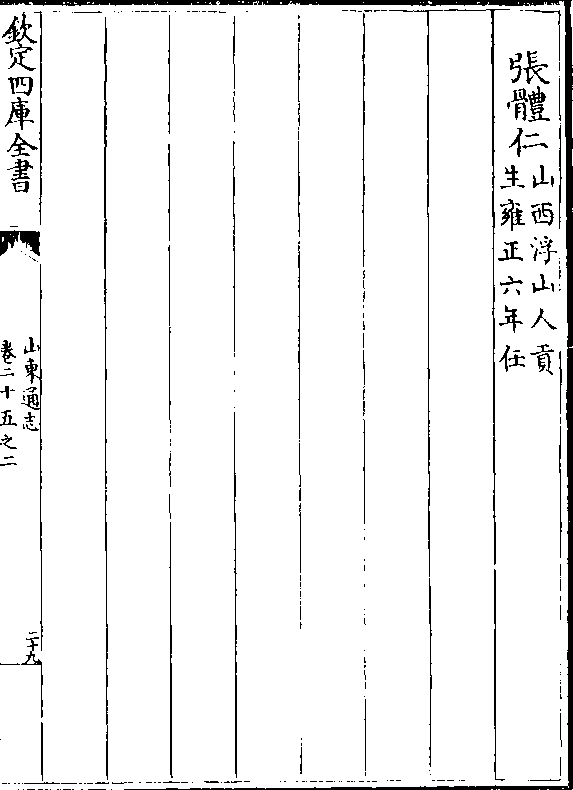 張體仁山西浮山人貢
生雍正六年任
欽定四庫全書
山東通志
卷二十五之二
二十九